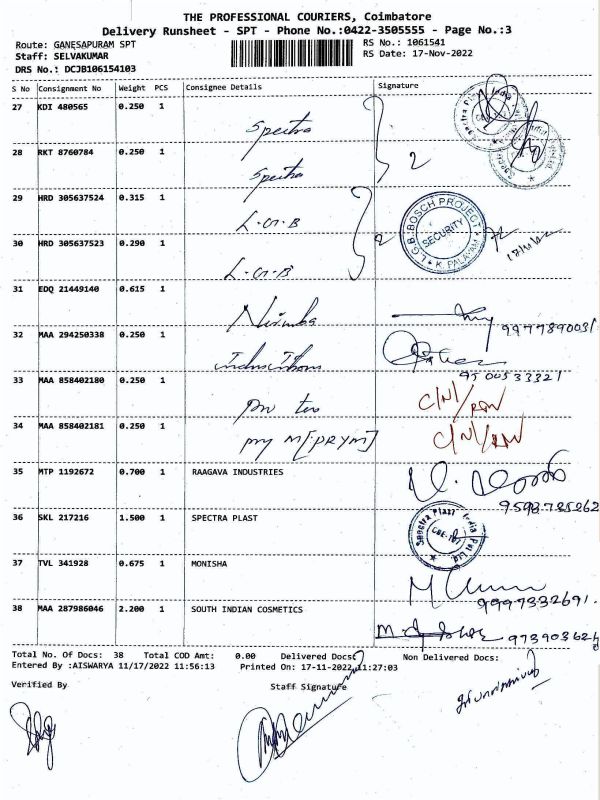 THE PROFESSIONAL COURIERS, Coimbatore
Delivery Runsheet - SPT - Phone No.:0422-3505555 - Page No.:3
Route: GANESAPURAM SPT
RS No.: 1061541
Staff: SELVAKUMAR
RS Date: 17-Nov-2022
DRS No.: DCJB106154103
S No Consignment No Weight PCS Consignee Details Signature
27 KDI 480565 0.250 1 Spectra
28 RKT 8760784 0.250 1 Spectra 2
29 HRD 305637524 0.315 1 L.G.B 2
30 HRD 305637523 0.290 1 L.G.B
L.G.B. BOSCH PROJECT
SECURITY
K. PALAYAM
31 EDQ 21449140 0.615 1 Nirimba 9977890031
32 MAA 294250338 0.250 1 9500533321
33 MAA 858402180 0.250 1 C/N/RDN
34 MAA 858402181 0.250 1 pny M[PRYM] C/N/RDN
35 MTP 1192672 0.700 1 RAAGAVA INDUSTRIES
36 SKL 217216 1.500 1 SPECTRA PLAST
Spectra Plast India Pvt Ltd
37 TVL 341928 0.675 1 MONISHA 9997332691.
38 MAA 287986046 2.200 1 SOUTH INDIAN COSMETICS
Total No. Of Docs: 38 Total COD Amt: 0.00 Delivered Docs: Non Delivered Docs:
Entered By :AISWARYA 11/17/2022 11:56:13 Printed On: 17-11-2022 11:27:03
Verified By Staff Signature